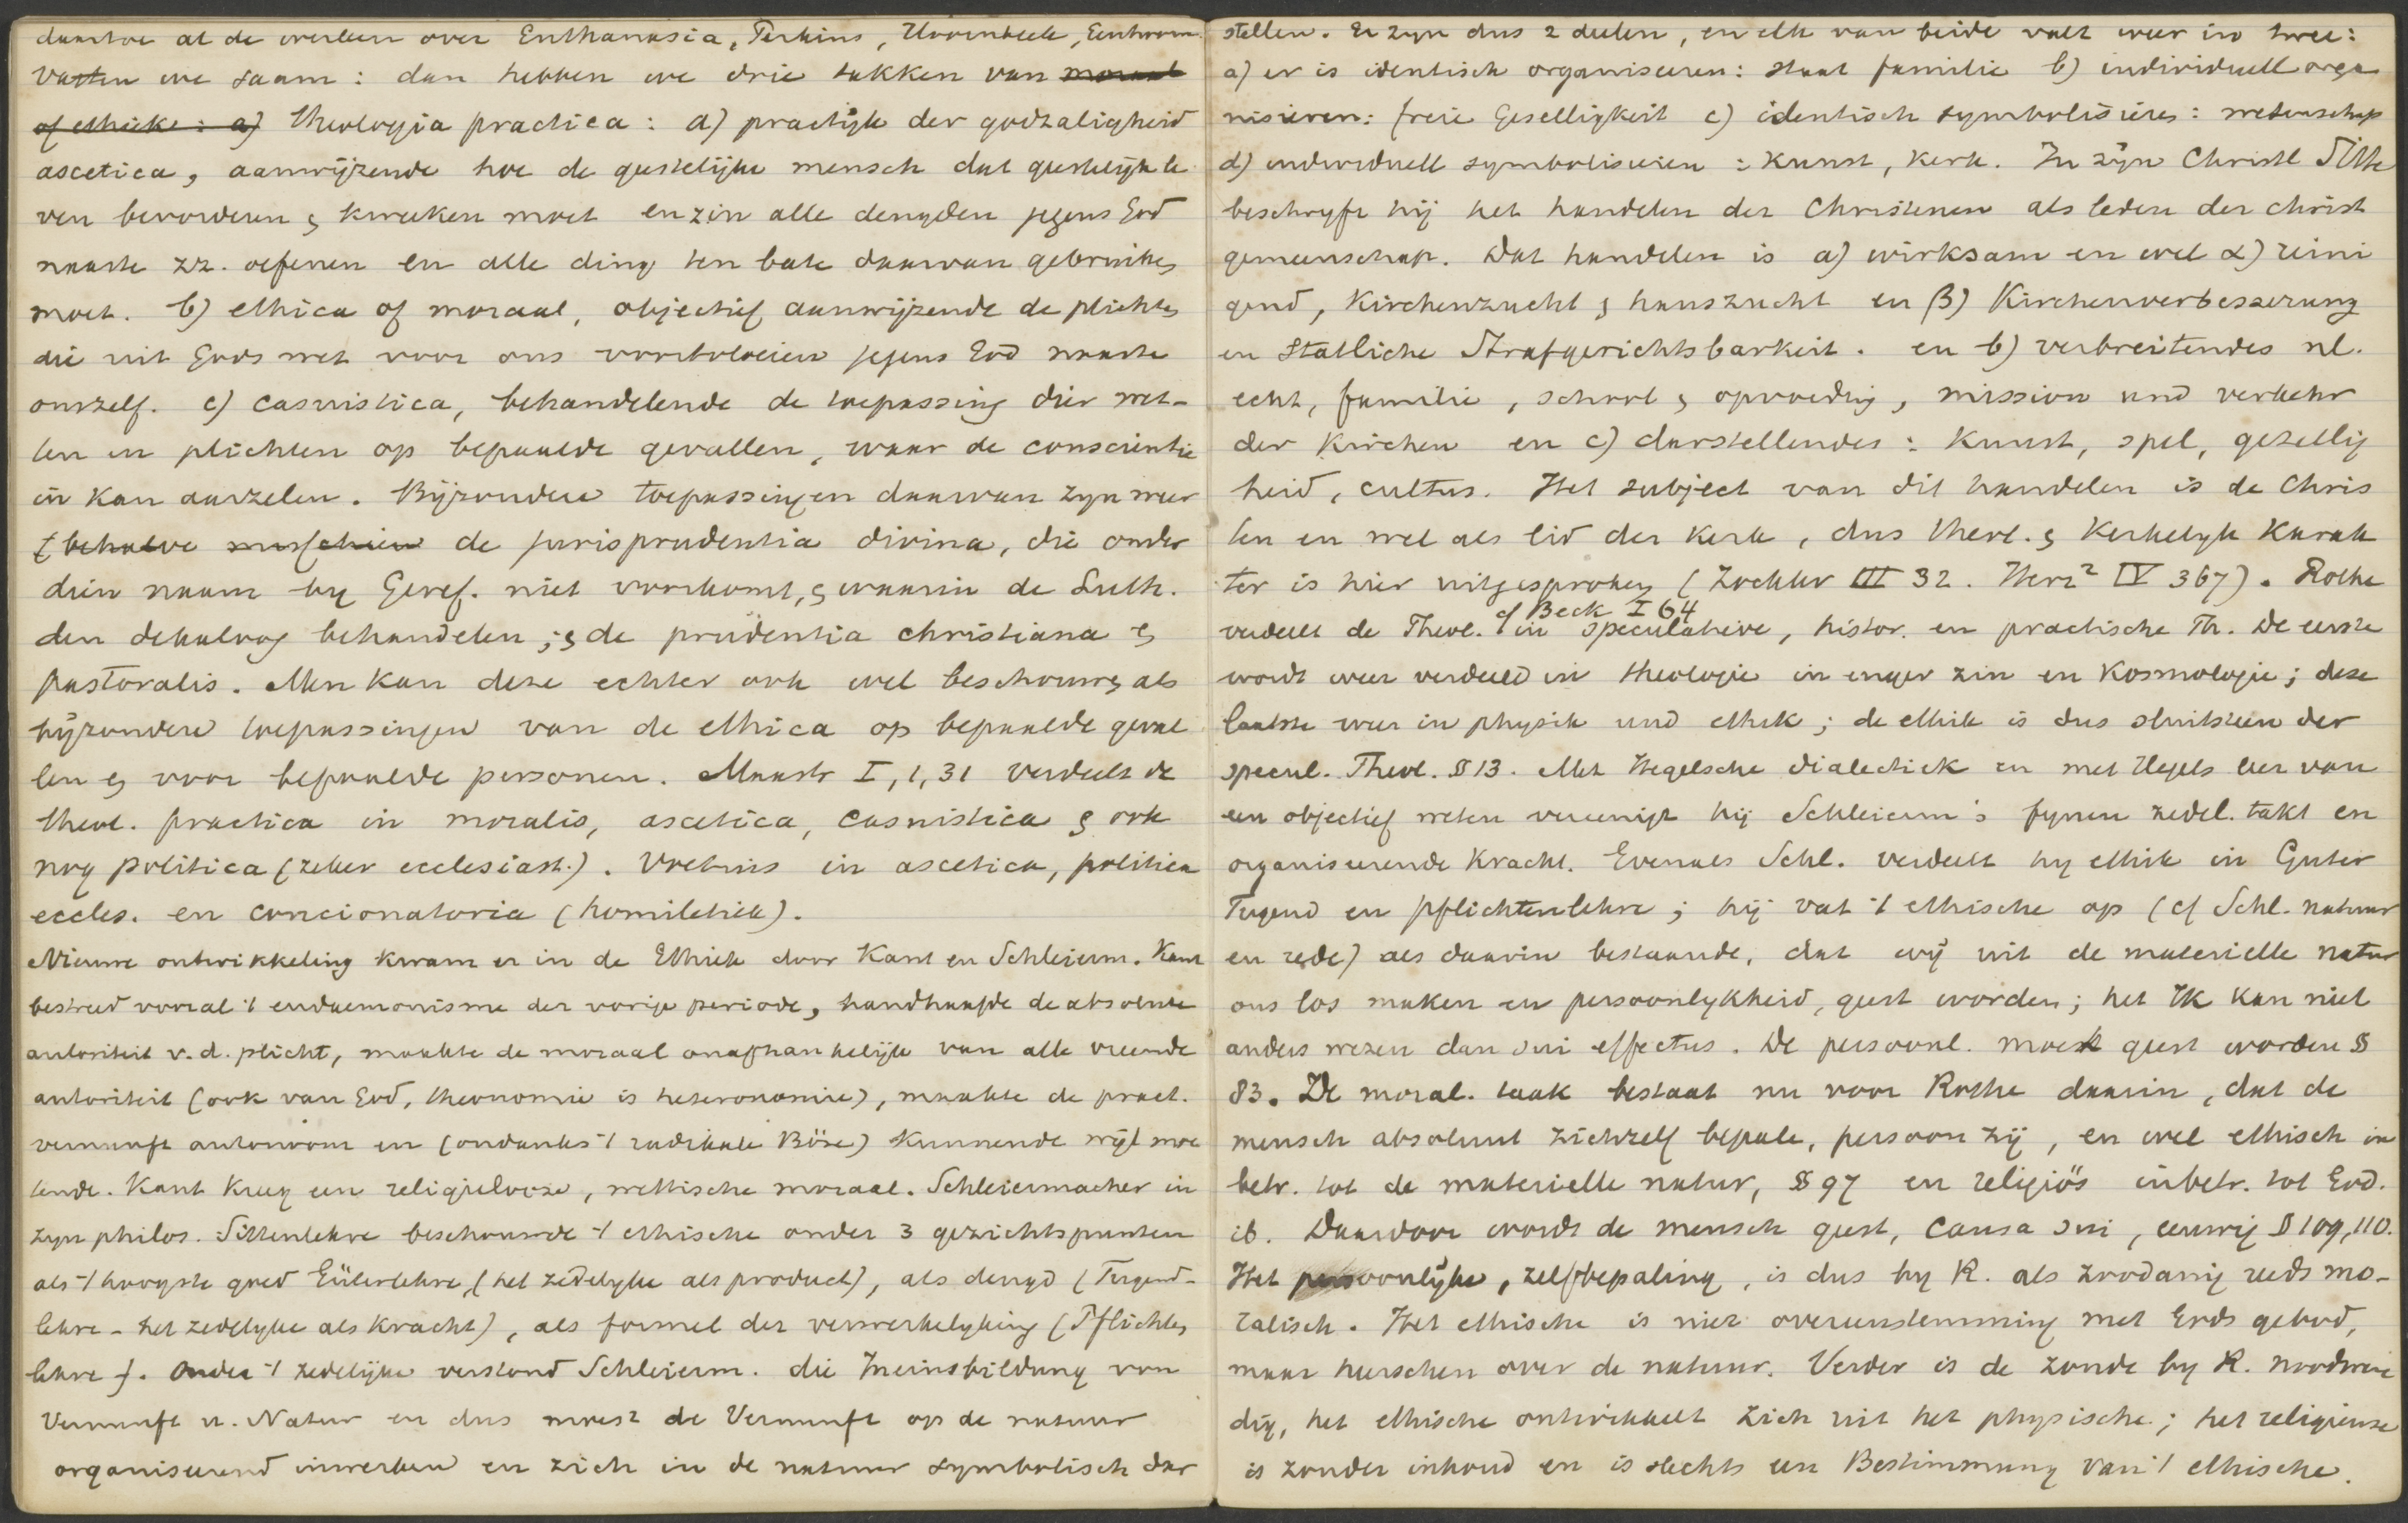 daartoe al de werken over Euthanasia, Perkins, Hoornbeek, Eenhoorn.
Vatten we saam: dan hebben we drie takken van moraal
of ethiek: a) theologia practica: a) practijk der godzaligheid
ascetica, aanwijzende hoe de geestelijke mensch dat geestelijk le
ven bevorderen en kweeken moet en zin alle deugden jegens God
naaste zz. oefenen en alle ding ten bate daarvan gebruiken
moet. b) ethica of moraal, objectief aanwijzende de plichten
die uit Gods wet voor ons voortvloeien jegens God naaste
onszelf. c) casuistica, behandelende de toepassing dier wet-
ten en plichten op bepaalde gevallen, waar de conscientie
in kan aarzelen. Bijzondere toepassingen daarvan zyn weer
(behalve misschien de jurisprudentia divina, die onder
dien naam by Geref. niet voorkomt, en waarin de Luth.
den dekaloog behandelen; en de prudentia christiana en
pastoralis. Men kan deze echter ook wel beschouwen als
bijzondere toepassingen van de ethica op bepaalde geval
len en voor bepaalde personen. Maastr I, 1, 31 verdeelt de
theol. practica in moralis, ascetica, casuistica en ook
nog politica (zeker ecclesiast.). Voetius in ascetica, politica
eccles. en concionatoria (homiletiek).
Nieuwe ontwikkeling kwam er in de Ethiek door Kant en Schleierm. Kant
bestreed vooral 't eudaemonisme der vorige periode, handhaafde de absolute
autoriteit v.d. plicht, maakte de moraal onafhankelijk van alle vreemde
autoriteit (ook van God, theonomie is heteronomie), maakte de pract.
vernunft autonoom en (ondanks 't radikale Böse) kunnende wijl moe
tende. Kant kreeg een religielooze, wettische moraal. Schleiermacher in
zyn philos. Sittenlehre beschouwde 't ethische onder 3 gezichtspunten
als 't hoogste goed Güterlehre, (het zedelyke als product), als deugd (Tugend-
lehre - het zedelyke als kracht), als formel der verwerkelyking (Pflichten
lehre). Onder 't zedelijke verstond Schleierm. die Ineinsbildung von
Vernunft u. Natur en dus moest de Vernunft op de natuur
organiseerend inwerken en zich in de natuur symbolisch dar
stellen. Er zyn dus 2 deelen, en elk van beide valt weer in twee:
a) er is identisch organiseeren: staat familie b) individuell orga
nisieren: freie Geselligkeit c) identisch symbolisieren: wetenschap
d) individuell symboliseeren: kunst, kerk. In zijn Christl Sitte
beschryft hij het handelen der Christenen als leden der christ
gemeenschap. Dat handelen is a) wirksam en wel α) reini
gend, Kirchenzucht en hauszucht en β) Kirchenverbesserung
en statliche Strafgerichtsbarkeit. en b) verbreitendes nl.
echt, familie, school en opvoeding, mission und verkehr
der Kirchen en c) darstellendes: kunst, spel, gezellig
heid, cultus. Het subject van dit handelen is de Chris
ten en wel als lid der kerk, dus theol. en kerkelyk karak
ter is hier uitgesproken (Zockler III 32. Herz² IV 367). Rothe
cf Beck I 64
verdeelt de Theol. in speculatieve, histor. en practische Th. De eerste
wordt weer verdeeld in theologie in enger zin en Kosmologie; deze
laatste weer in physik und ethik; de ethik is dus sluitsteen der
specul. Theol. § 13. Met Hegelsche dialectick en met Hegels leer van
een objectief weten vereenigt hij Schleierm's fynen zedel. takt en
organiseerende kracht. Evenals Schl. verdeelt hy ethik in Güter
Tugend en pflichtenlehre; hij vat 't ethische op (cf Schl. natuur
en rede) als daarin bestaande, dat wij uit de materielle natur
ons los maken en persoonlykheid, geest worden; het Ik kan niet
anders wezen dan sui effectus. De persoonl. moet geest worden §
83. De moral. taak bestaat nu voor Rothe daarin, dat de
mensch absoluut zichzelf bepale, persoon zij, en wel ethisch in
betr. tot de materielle natur, § 97 en religiös inbetr. tot God.
ib. Daardoor wordt de mensch geest, causa sui, eeuwig § 109, 110.
Het persoonlijke, zelfbepaling, is dus by R. als zoodanig reeds mo-
ralisch. Het ethische is niet overeenstemming met Gods gebod,
maar heerschen over de natuur. Verder is de zonde by R. noodwen
dig, het ethische ontwikkelt zich uit het physische; het religieuse
is zonder inhoud en is slechts een Bestimmung van 't ethische.